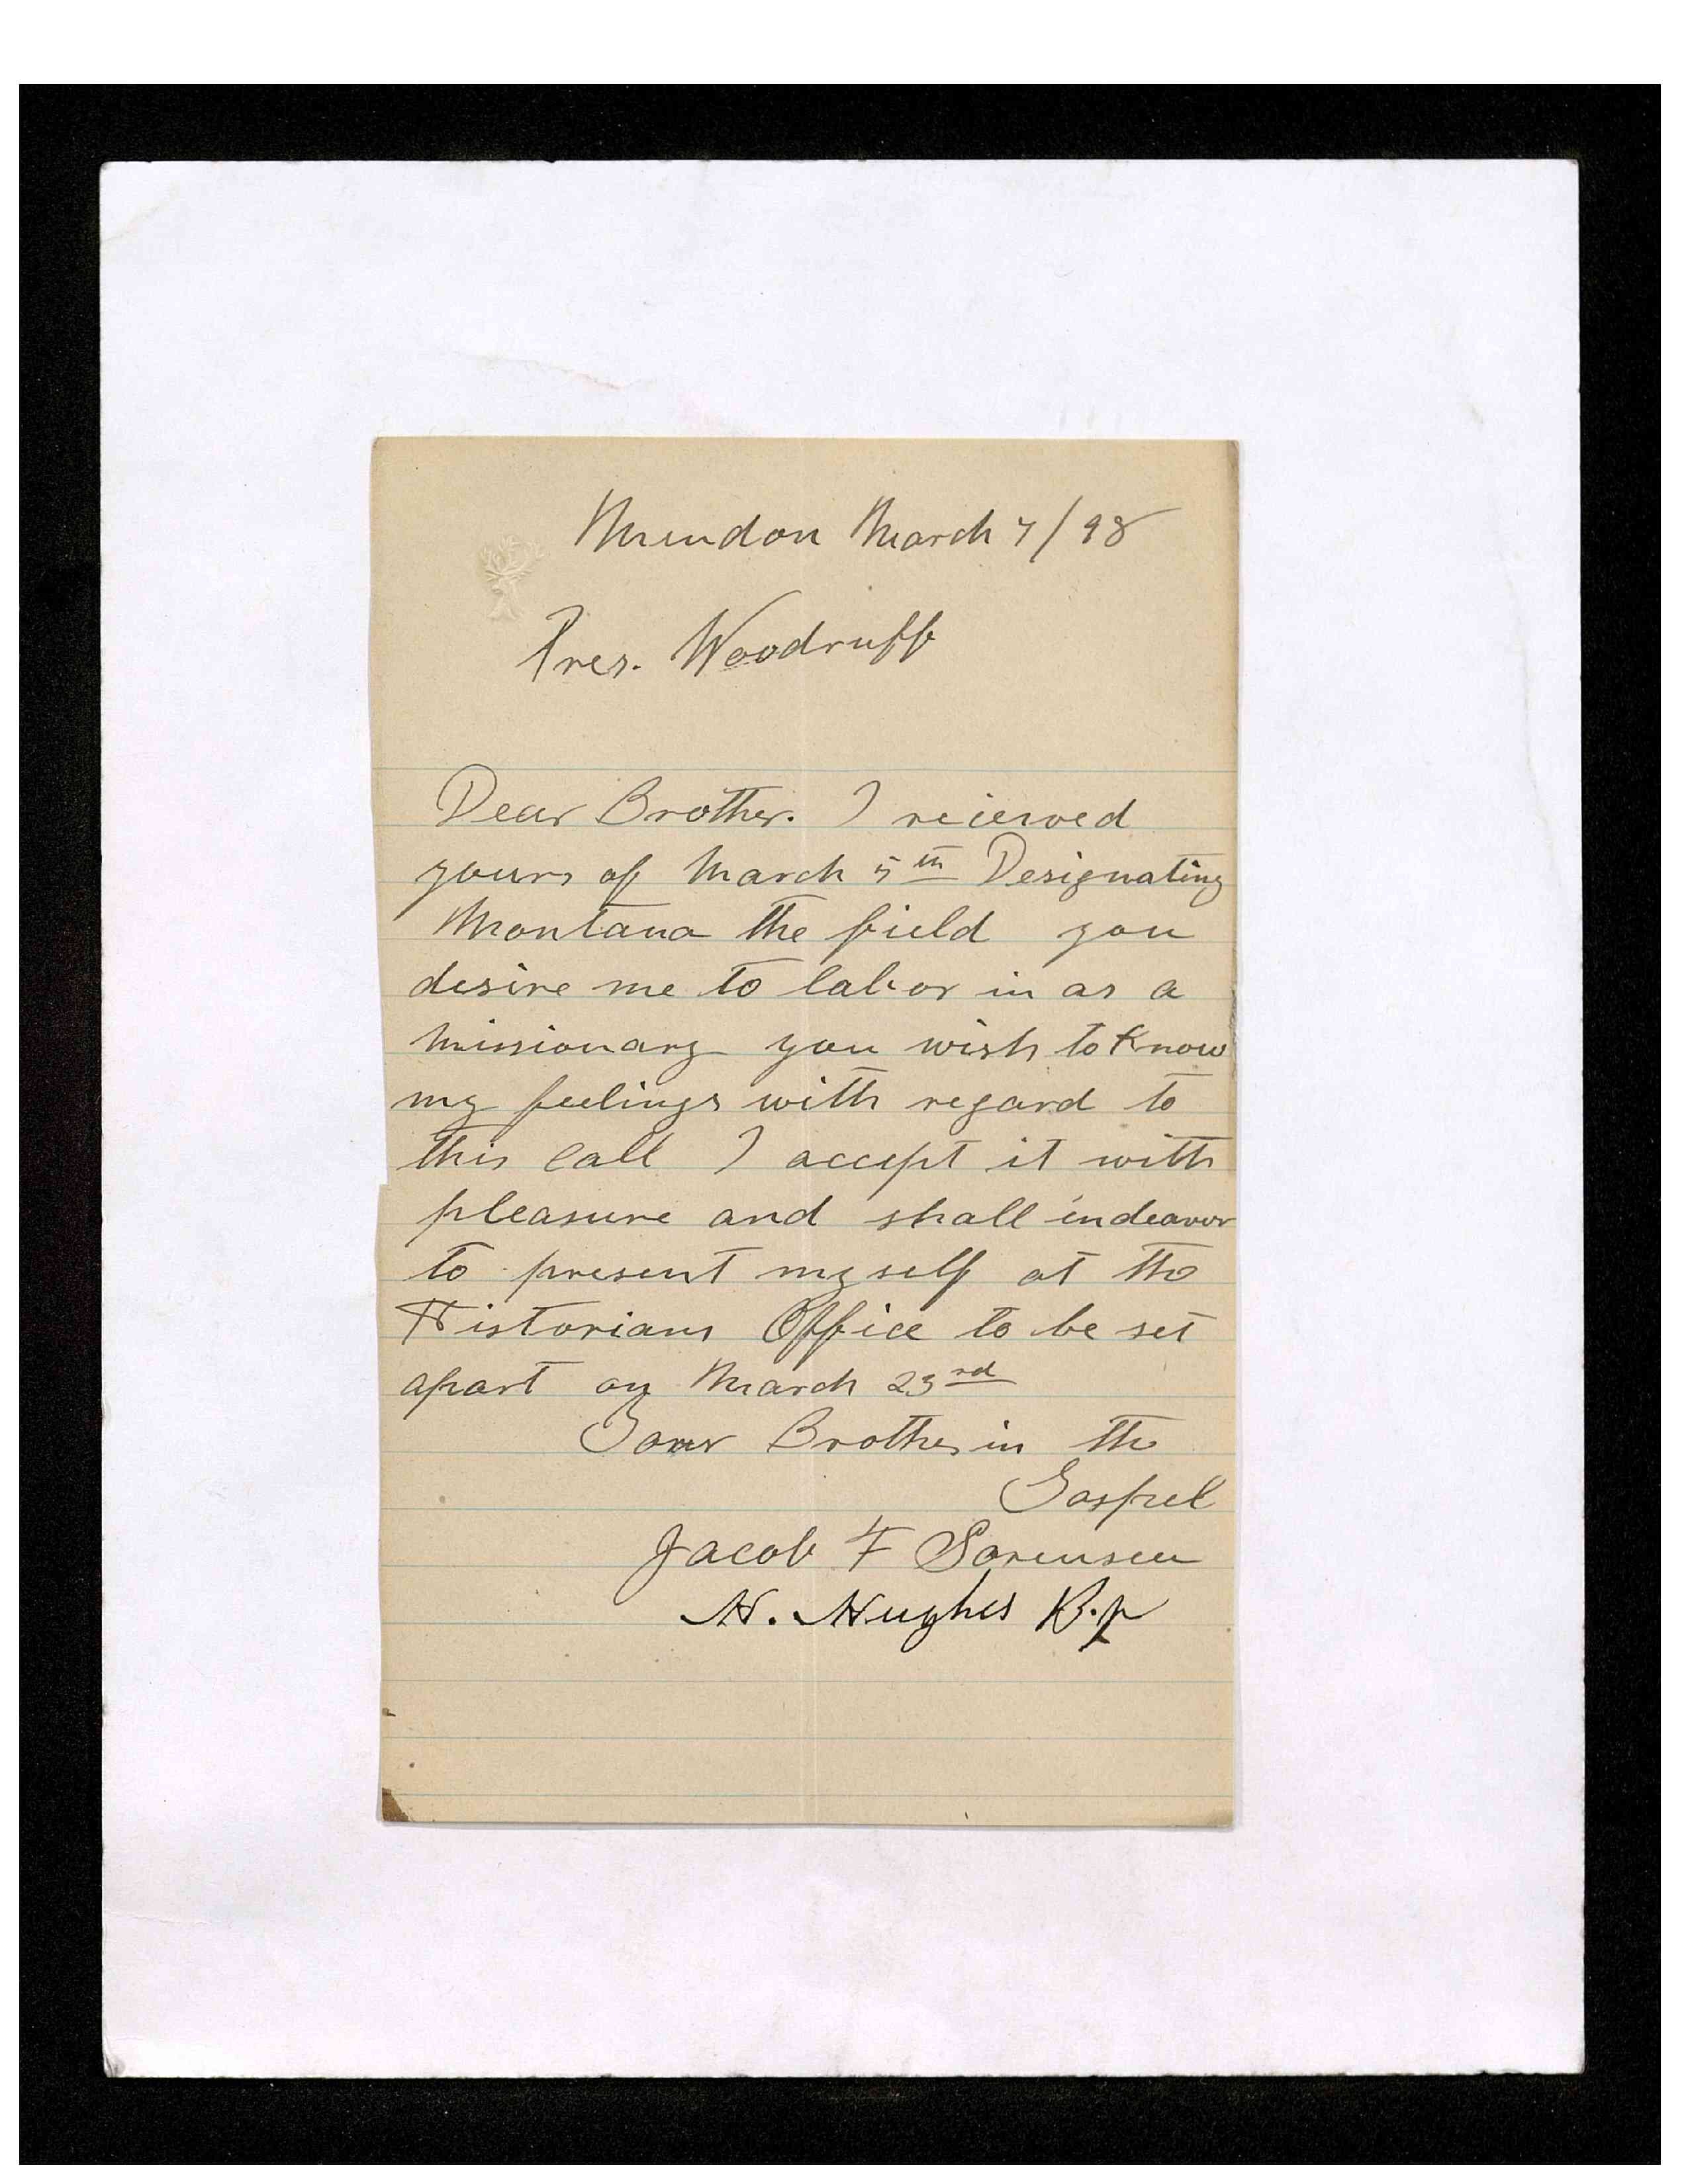 Mendon March 7/98
Pres. Woodruff
Dear Brother. I recieved
yours of March 5th Designating
Montana the field you
desire me to labor in as a
missionary you wish to Know
my feelings with regard to
this call I accept it with
pleasure and shall indeavor
to present myself at the
Historians Office to be set
apart on March 23rd
Your Brother in the
Gospel
Jacob F Sorensen
H. Hughes B.p